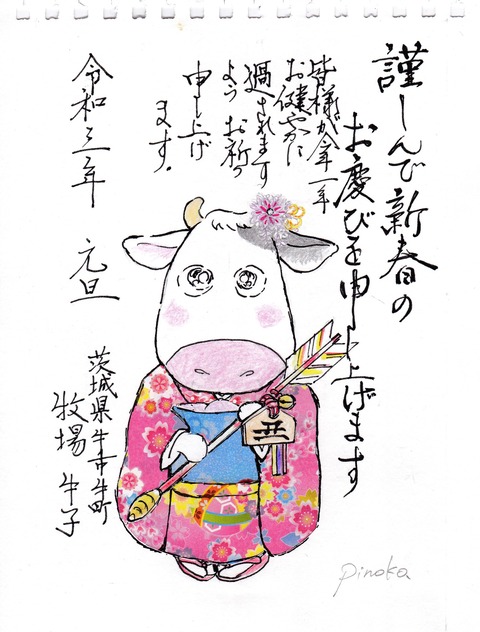 謹しんで新春の
お慶びを申し上げます
皆様が今年一年
お健やかに
過されます
よう お祈り
申し上げ
ます。
令和三年 元旦
茨城県牛市牛町
牧場 牛子
丑
pinoka